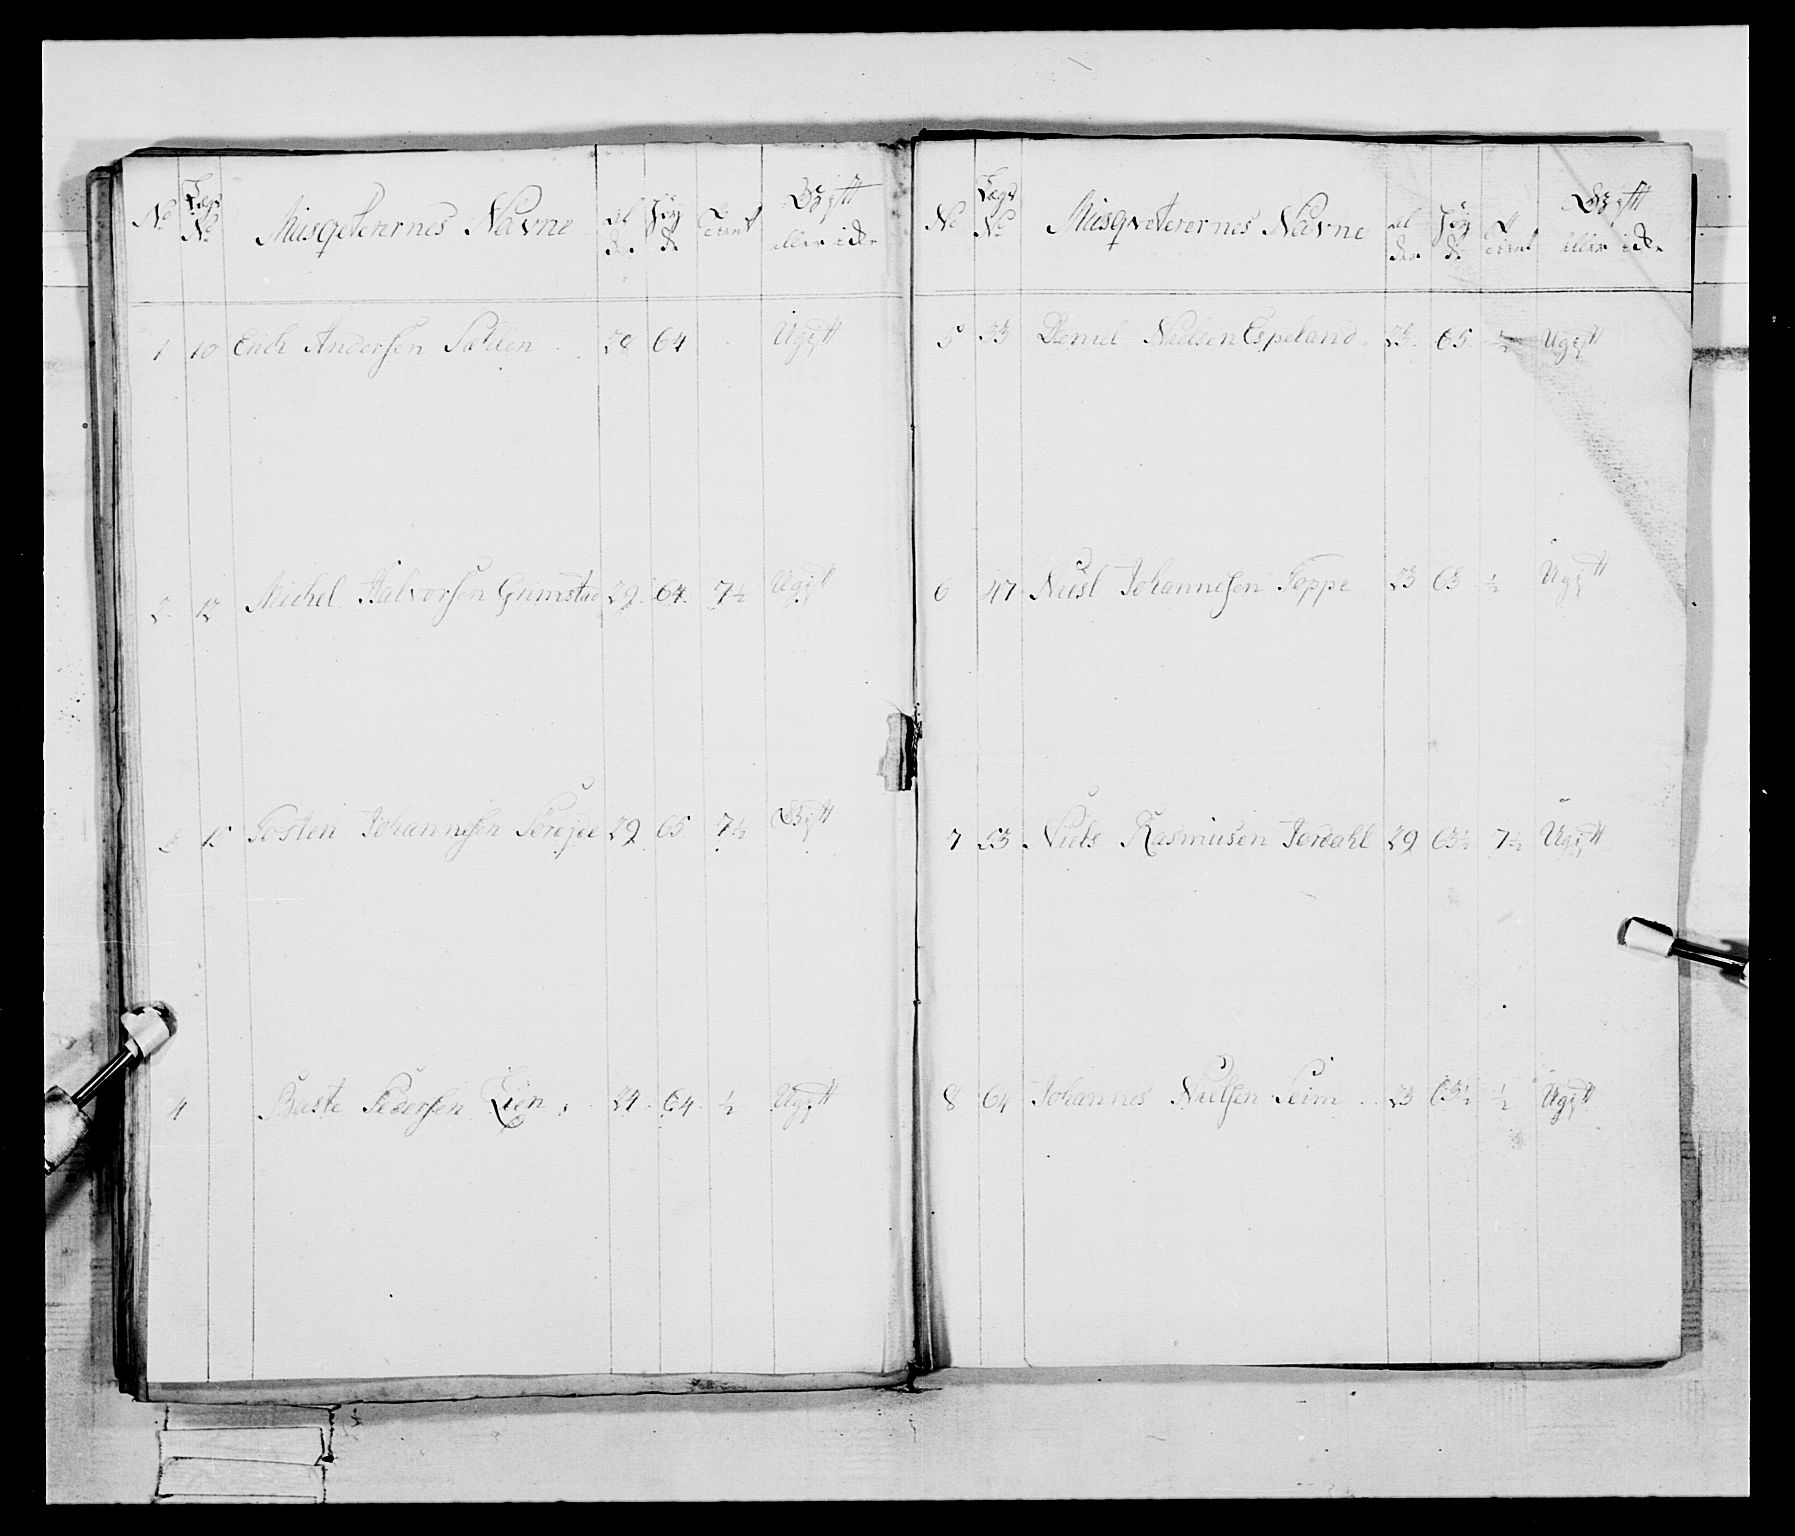 No Lægs No Musqveterernes Navne Alder Høyde Gift eller ikke
1 10 Erich Andersen Sælden 28 64 Ugift
2 12 Michel Halvorsen Grimstad 29 64 7½ Ugift
3 15 Tosten Johannesen 29 65 7½ Gift
4 Baste Pedersen Lien 24 64 ½ Ugift
No Lægs No Musqveterernes Navne Alder Høyde Gift eller ikke
5 33 Daniel Nielsen Espeland 23 65 ½ Ugift
6 47 Niesl Johannesen Toppe 23 63 ½ Ugift
7 53 Niels Rasmusen Jordahl 29 63½ 7½ Ugift
8 64 Johannes Nielsen Seim 23 63½ ½ Ugift